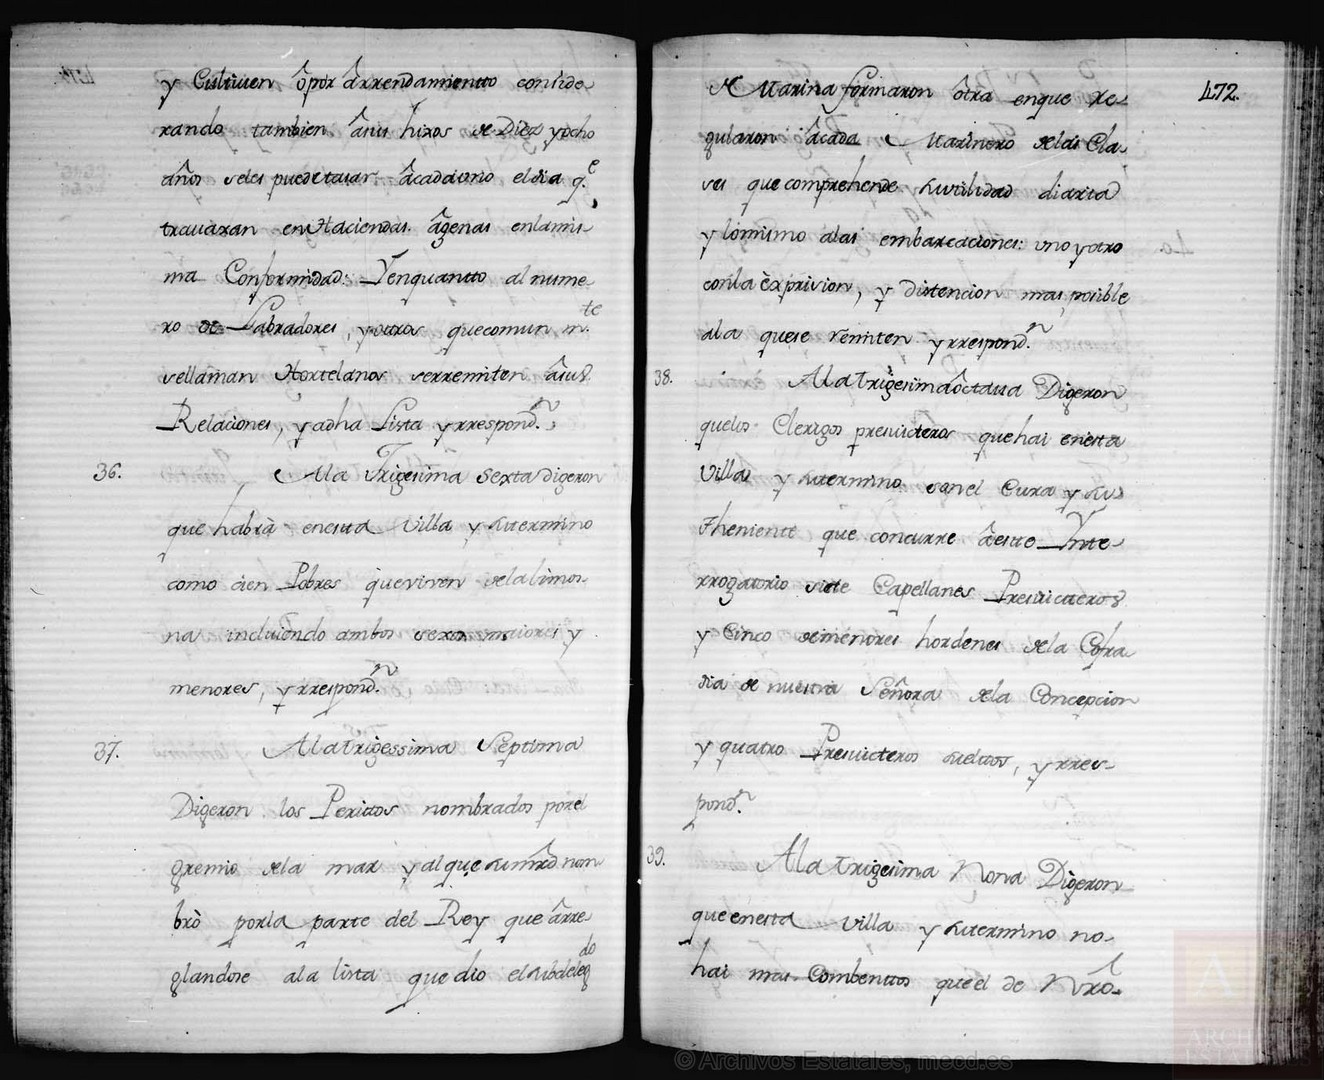 y Cultiuen ô por ârrendamientto conside-
rando tambien âsus hixos de Diez y ocho
años seles puede tasar âcada uno el dia q.e
trauaxan en Haciendas âgenas enlamis-
ma Conformidad: Y enquantto al nume-
ro de Labradores, y otros que comun m.te
sellaman Hortelanos serremiten âsus
Relaciones, y adha Lista y rrespond.n
36. Ala Trigesima sexta digeron
que habrà en esta Villa y sutermino
como cien Pobres que viven dela limos-
na incluiendo ambos sexos maiores y
menores, y rrespond.n
37. Ala trigessima Septima
Digeron los Perittos nombrados por el
gremio dela mar y al que su mrd nom
brò porla parte del Rey que ârre-
glandose ala lista que dio el subdeleg.do
472.
de Marina formaron ôtra enque re-
gularon âcada Marinero delas Cla-
ses que comprehende su utilidad diaria
y lomismo alas embarcaciones: uno y otro
conla èxprision, y distencion mas posible
ala quese remiten y rrespond.n
38. Ala trigesima ôctaua Digeron
quelos Clerigos presuicteros que hai enesta
Villa y sutermino son el Cura y su
Theniente que concurre âeste Ynte-
rrogatorio siete Capellanes Presuicteros
y Cinco demenores hordenes dela Cofra-
dia de nuestra Señora dela Concepcion
y quatro Presuicteros sueltos, y rres-
pond.n
39. Ala trigesima Nona Digeron
que enesta Villa y sutermino no-
hai mas Combentos que el de Nrô-
© Archivos Estatales, mecd.es